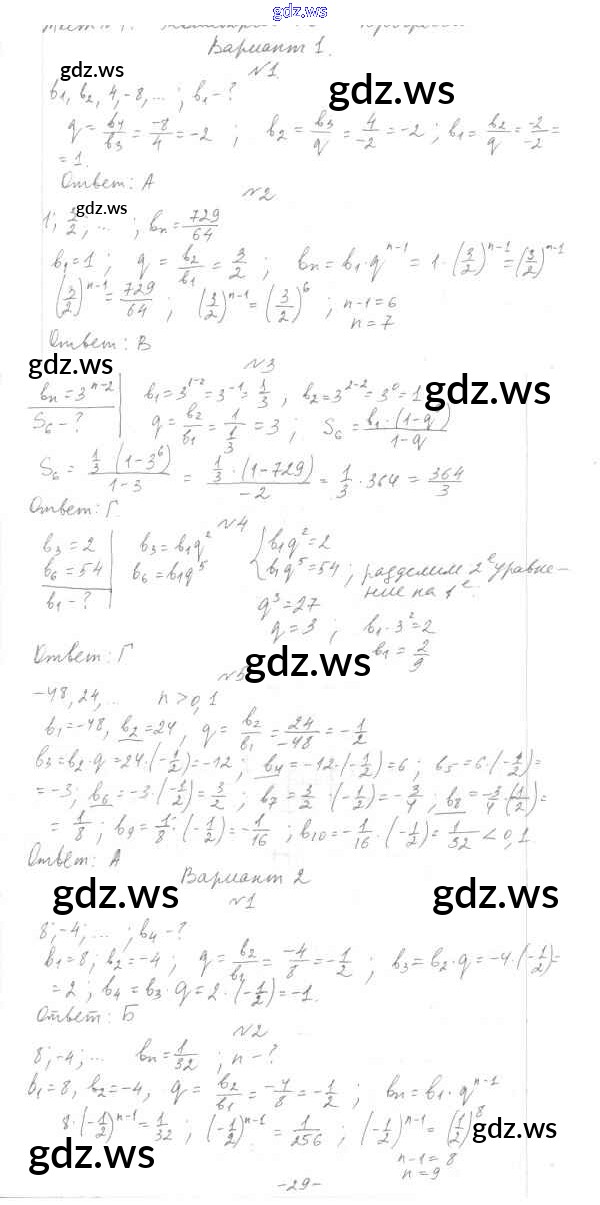 gdz.ws
Вариант 1.
gdz.ws
№1.
gdz.ws
b₁, b₂, 4, -8, ... ; b₁ - ?
q = b₄/b₃ = -8/4 = -2 ; b₂ = b₃/q = 4/-2 = -2 ; b₁ = b₂/q = -2/-2 =
= 1.
Ответ: А
№2
gdz.ws
1; 3/2; ... ; bₙ = 729/64
b₁ = 1 ; q = b₂/b₁ = 3/2 ; bₙ = b₁·qⁿ⁻¹ = 1·(3/2)ⁿ⁻¹ = (3/2)ⁿ⁻¹
(3/2)ⁿ⁻¹ = 729/64 ; (3/2)ⁿ⁻¹ = (3/2)⁶ ; n-1 = 6
n = 7
Ответ: В
gdz.ws
№3
bₙ = 3ⁿ⁻² b₁ = 3¹⁻² = 3⁻¹ = 1/3 , b₂ = 3²⁻² = 3⁰ = 1
gdz.ws
S₆ - ? q = b₂/b₁ = 1/(1/3) = 3 ; S₆ = b₁·(1-q⁶)/1-q
S₆ = 1/3 (1-3⁶)/1-3 = 1/3·(1-729)/-2 = 1/3·364 = 364/3
Ответ: Г.
№4
b₃ = 2 b₃ = b₁q² { b₁q² = 2
b₆ = 54 b₆ = b₁q⁵ b₁q⁵ = 54 ; разделим 2ᵉ уравне-
b₁ - ? ние на 1ᵉ.
q³ = 27
q = 3 ; b₁·3² = 2
b₁ = 2/9
Ответ: Г
gdz.ws
№5
-48, 24, ... n > 0,1
b₁ = -48, b₂ = 24, q = b₂/b₁ = 24/-48 = -1/2
b₃ = b₂·q = 24·(-1/2) = -12 ; b₄ = -12·(-1/2) = 6 ; b₅ = 6·(-1/2) =
= -3; b₆ = -3·(-1/2) = 3/2 ; b₇ = 3/2 (-1/2) = -3/4 ; b₈ = -3/4·(1/2) =
= 1/8 ; b₉ = 1/8·(-1/2) = -1/16 ; b₁₀ = -1/16·(-1/2) = 1/32 < 0,1
Ответ: А
Вариант 2
gdz.ws
gdz.ws
№1
8; -4; ... ; b₄ - ?
b₁ = 8 ; b₂ = -4 ; q = b₂/b₁ = -4/8 = -1/2 ; b₃ = b₂·q = -4·(-1/2) =
= 2 ; b₄ = b₃·q = 2·(-1/2) = -1.
Ответ: Б
№2
8; -4; ... bₙ = 1/32 ; n - ?
b₁ = 8, b₂ = -4, q = b₂/b₁ = -4/8 = -1/2 ; bₙ = b₁·qⁿ⁻¹
8·(-1/2)ⁿ⁻¹ = 1/32 ; (-1/2)ⁿ⁻¹ = 1/256 ; (-1/2)ⁿ⁻¹ = (1/2)⁸
gdz.ws
gdz.ws
n-1 = 8
n = 9
-29-